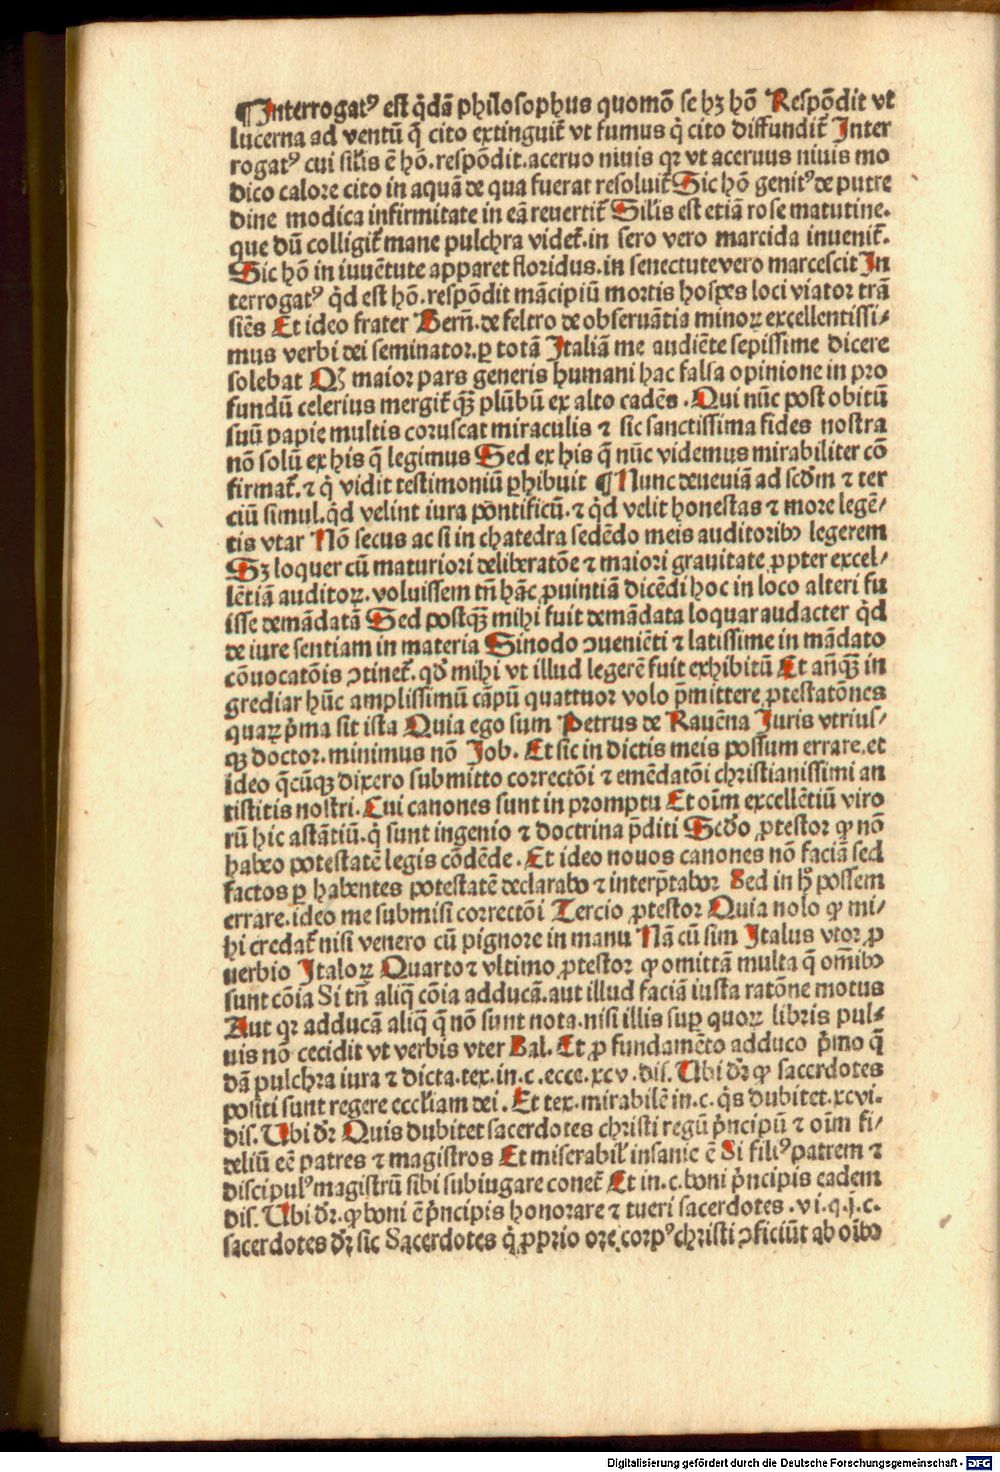 ¶Interrogatꝰ est q̇dā philosophus quomō se hꝫ hō Respōdit vt
lucerna ad ventū q̄ cito extinguit̄ vt fumus q̇ cito diffundit̄ Inter
rogatꝰ cui sil̄is ē hō.respōdit.aceruo niuis qꝛ vt aceruus niuis mo
dico calore cito in aquā de qua fuerat resoluit̄ Sic hō genitꝰ de putre
dine modica infirmitate in eā reuertit̄ Sil̄is est etiā rose matutine.
que dū colligit̄ mane pulchra videt̄.in sero vero marcida inuenit̄.
Sic hō in iuuētute apparet floridus.in senectute vero marcescit In
terrogatꝰ q̇d est hō.respōdit mācipiū mortis hospes loci viator trā
siēs Et ideo frater Bern̄.de feltro de obseruātia minoꝝ excellentissi⸗
mus verbi dei seminator.ꝑ totā Italiā me audiēte sepissime dicere
solebat Qꝫ maior pars generis humani hac falsa opinione in pro
fundū celerius mergit̄ qꝫ̄ plūbū ex alto cadēs. Qui nūc post obitū
suū papie multis coruscat miraculis ⁊ sic sanctissima fides nostra
nō solū ex his q̄ legimus Sed ex his q̄ nūc videmus mirabiliter cō
firmat̄.⁊ q̇ vidit testimoniū ꝑhibuit ¶Nunc deueniā ad scd̄m ⁊ ter
ciū simul.q̇d velint iura pōntificū.⁊ q̇d velit honestas ⁊ more legē⸗
tis vtar Nō secus ac si in chatedra sedēdo meis auditoribꝫ legerem
Sꝫ loquer cū maturiori deliberatōe ⁊ maiori grauitate ꝓpter excel⸗
lētiā auditoꝝ.voluissem tn̄ hāc ꝓuintiā dicēdi hoc in loco alteri fu
isse demādatā Sed postqꝫ̄ mihi fuit demādata loquar audacter q̇d
de iure sentiam in materia Sinodo ↄueniēti ⁊ latissime in mādato
cōuocatōis ↄtinet̄.qd̄ mihi vt illud legerē fuit exhibitū Et an̄qꝫ̄ in
grediar hūc amplissimū cāpū quattuor volo p̄mittere ꝓtestatōnes
quaꝝ ṗma sit ista Quia ego sum Petrus de Rauēna Juris vtrius⸗
qꝫ doctor.minimus nō Job. Et sic in dictis meis possum errare.et
ideo q̄cūqꝫ dixero submitto correctōi ⁊ emēdatōi christianissimi an
tistitis nostri.Cui canones sunt in promptu Et oīm excellētiū viro
rū hic astātiū.q̇ sunt ingenio ⁊ doctrina p̄diti Scd̄o ꝓtestor ꝙ nō
habeo potestatē legis cōdēde. Et ideo nouos canones nō faciā sed
factos ꝑ habentes potestatē declarabo ⁊ interp̄tabor Sed in hͦ possem
errare.ideo me submisi correctōi Tercio ꝓtestor Quia nolo ꝙ mi⸗
hi credat̄ nisi venero cū pignore in manu Nā cū sim Italus vtor ꝓ
uerbio Italoꝝ Quarto ⁊ vltimo ꝓtestor ꝙ omittā multa q̄ om̄ibꝫ
sunt cōia Si tn̄ aliq̄ cōia adducā.aut illud faciā iusta ratōne motus
Aut qꝛ adducā aliq̄ q̄ nō sunt nota.nisi illis suꝑ quoꝝ libris pul⸗
uis nō cecidit vt verbis vter Bal. Et ꝓ fundamēto adduco ṗmo q̄
dā pulchra iura ⁊ dicta.tex.in.c.ecce.xcv.dis. Ubi dꝛ̄ ꝙ sacerdotes
positi sunt regere eccl̄iam dei. Et tex.mirabilē in.c.q̇s dubitet.xcvi.
dis. Ubi dꝛ̄ Quis dubitet sacerdotes christi regū ṗncipū ⁊ oīm fi⸗
deliū eē patres ⁊ magistros Et miserabil̄ insanie ē Si filiꝰ patrem ⁊
discipulꝰ magistrū sibi subiugare conet̄ Et in.c.boni ṗncipis eadem
dis. Ubi dꝛ̄.ꝙ boni ē ṗncipis honorare ⁊ tueri sacerdotes.vi.q.j.c.
sacerdotes dꝛ̄ sic Sacerdotes q̇ ꝓprio ore corpꝰ christi ↄficiūt ab oībꝫ
Digitalisierung gefördert durch die Deutsche Forschungsgemeinschaft - DFG